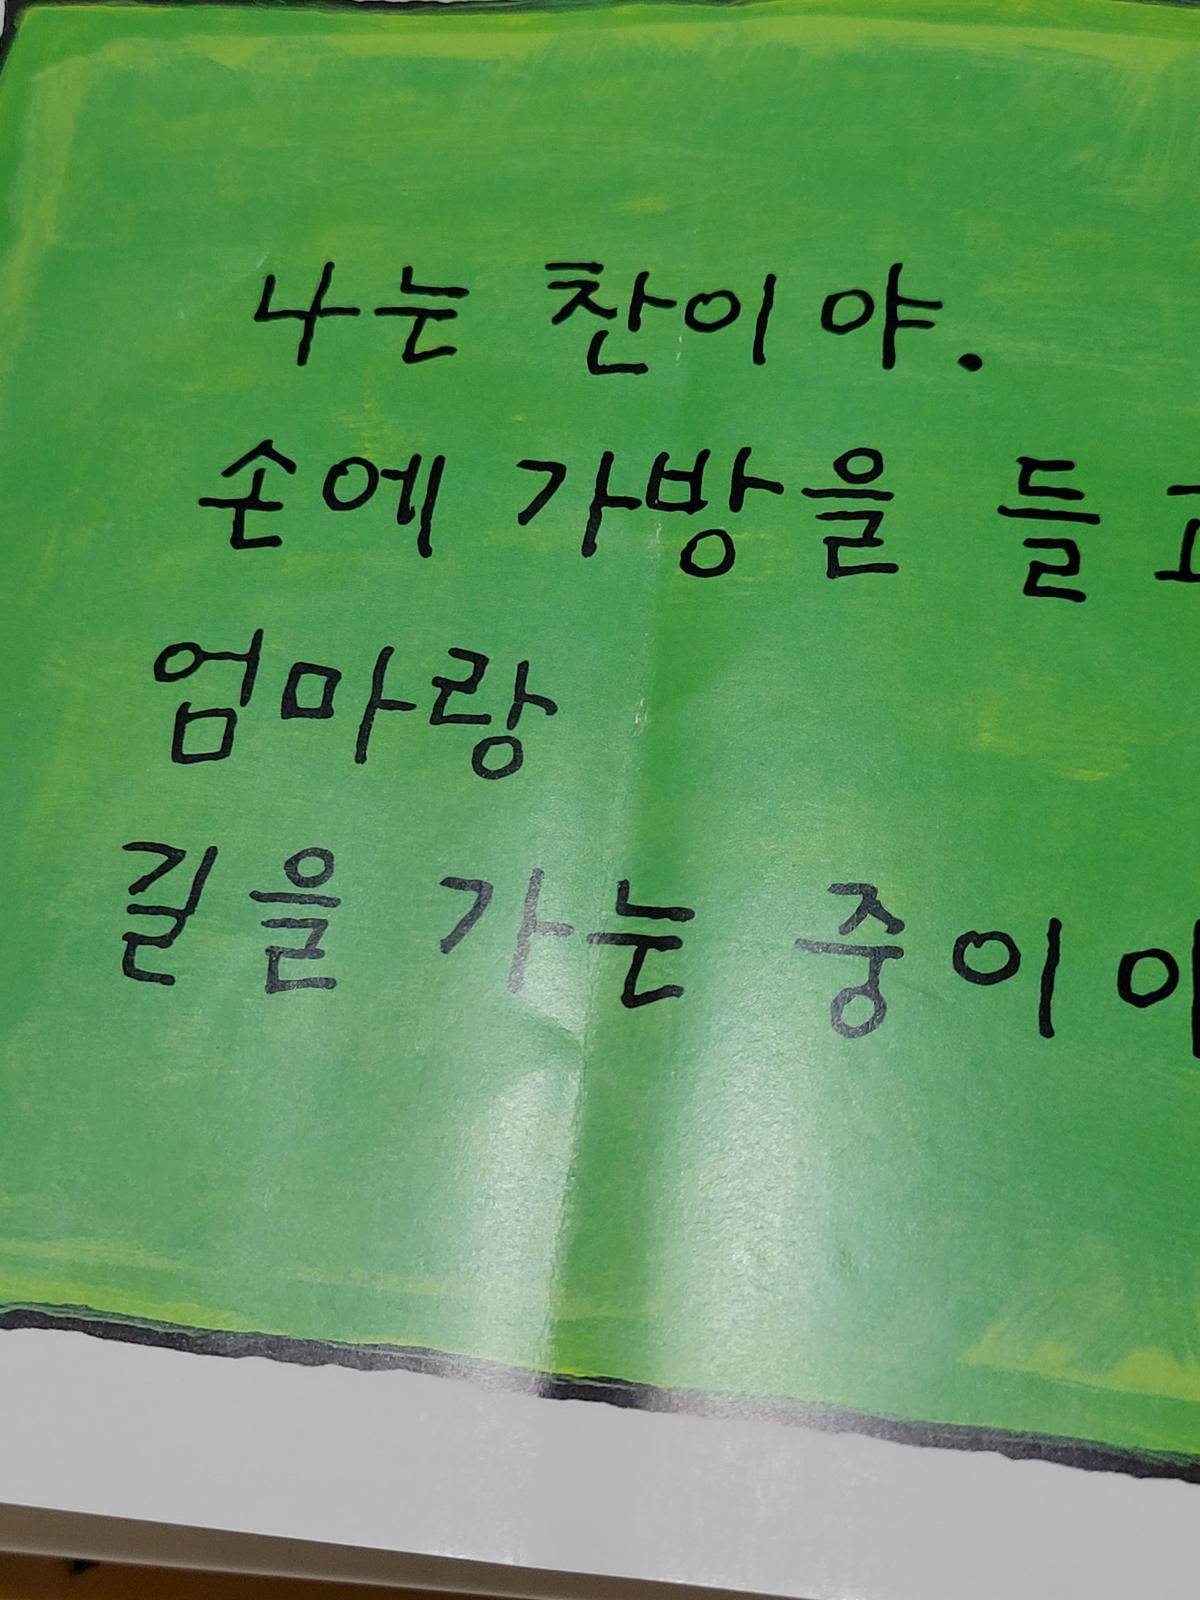 나는 찬이야.
손에 가방을 들고
엄마랑
길을 가는 중이야